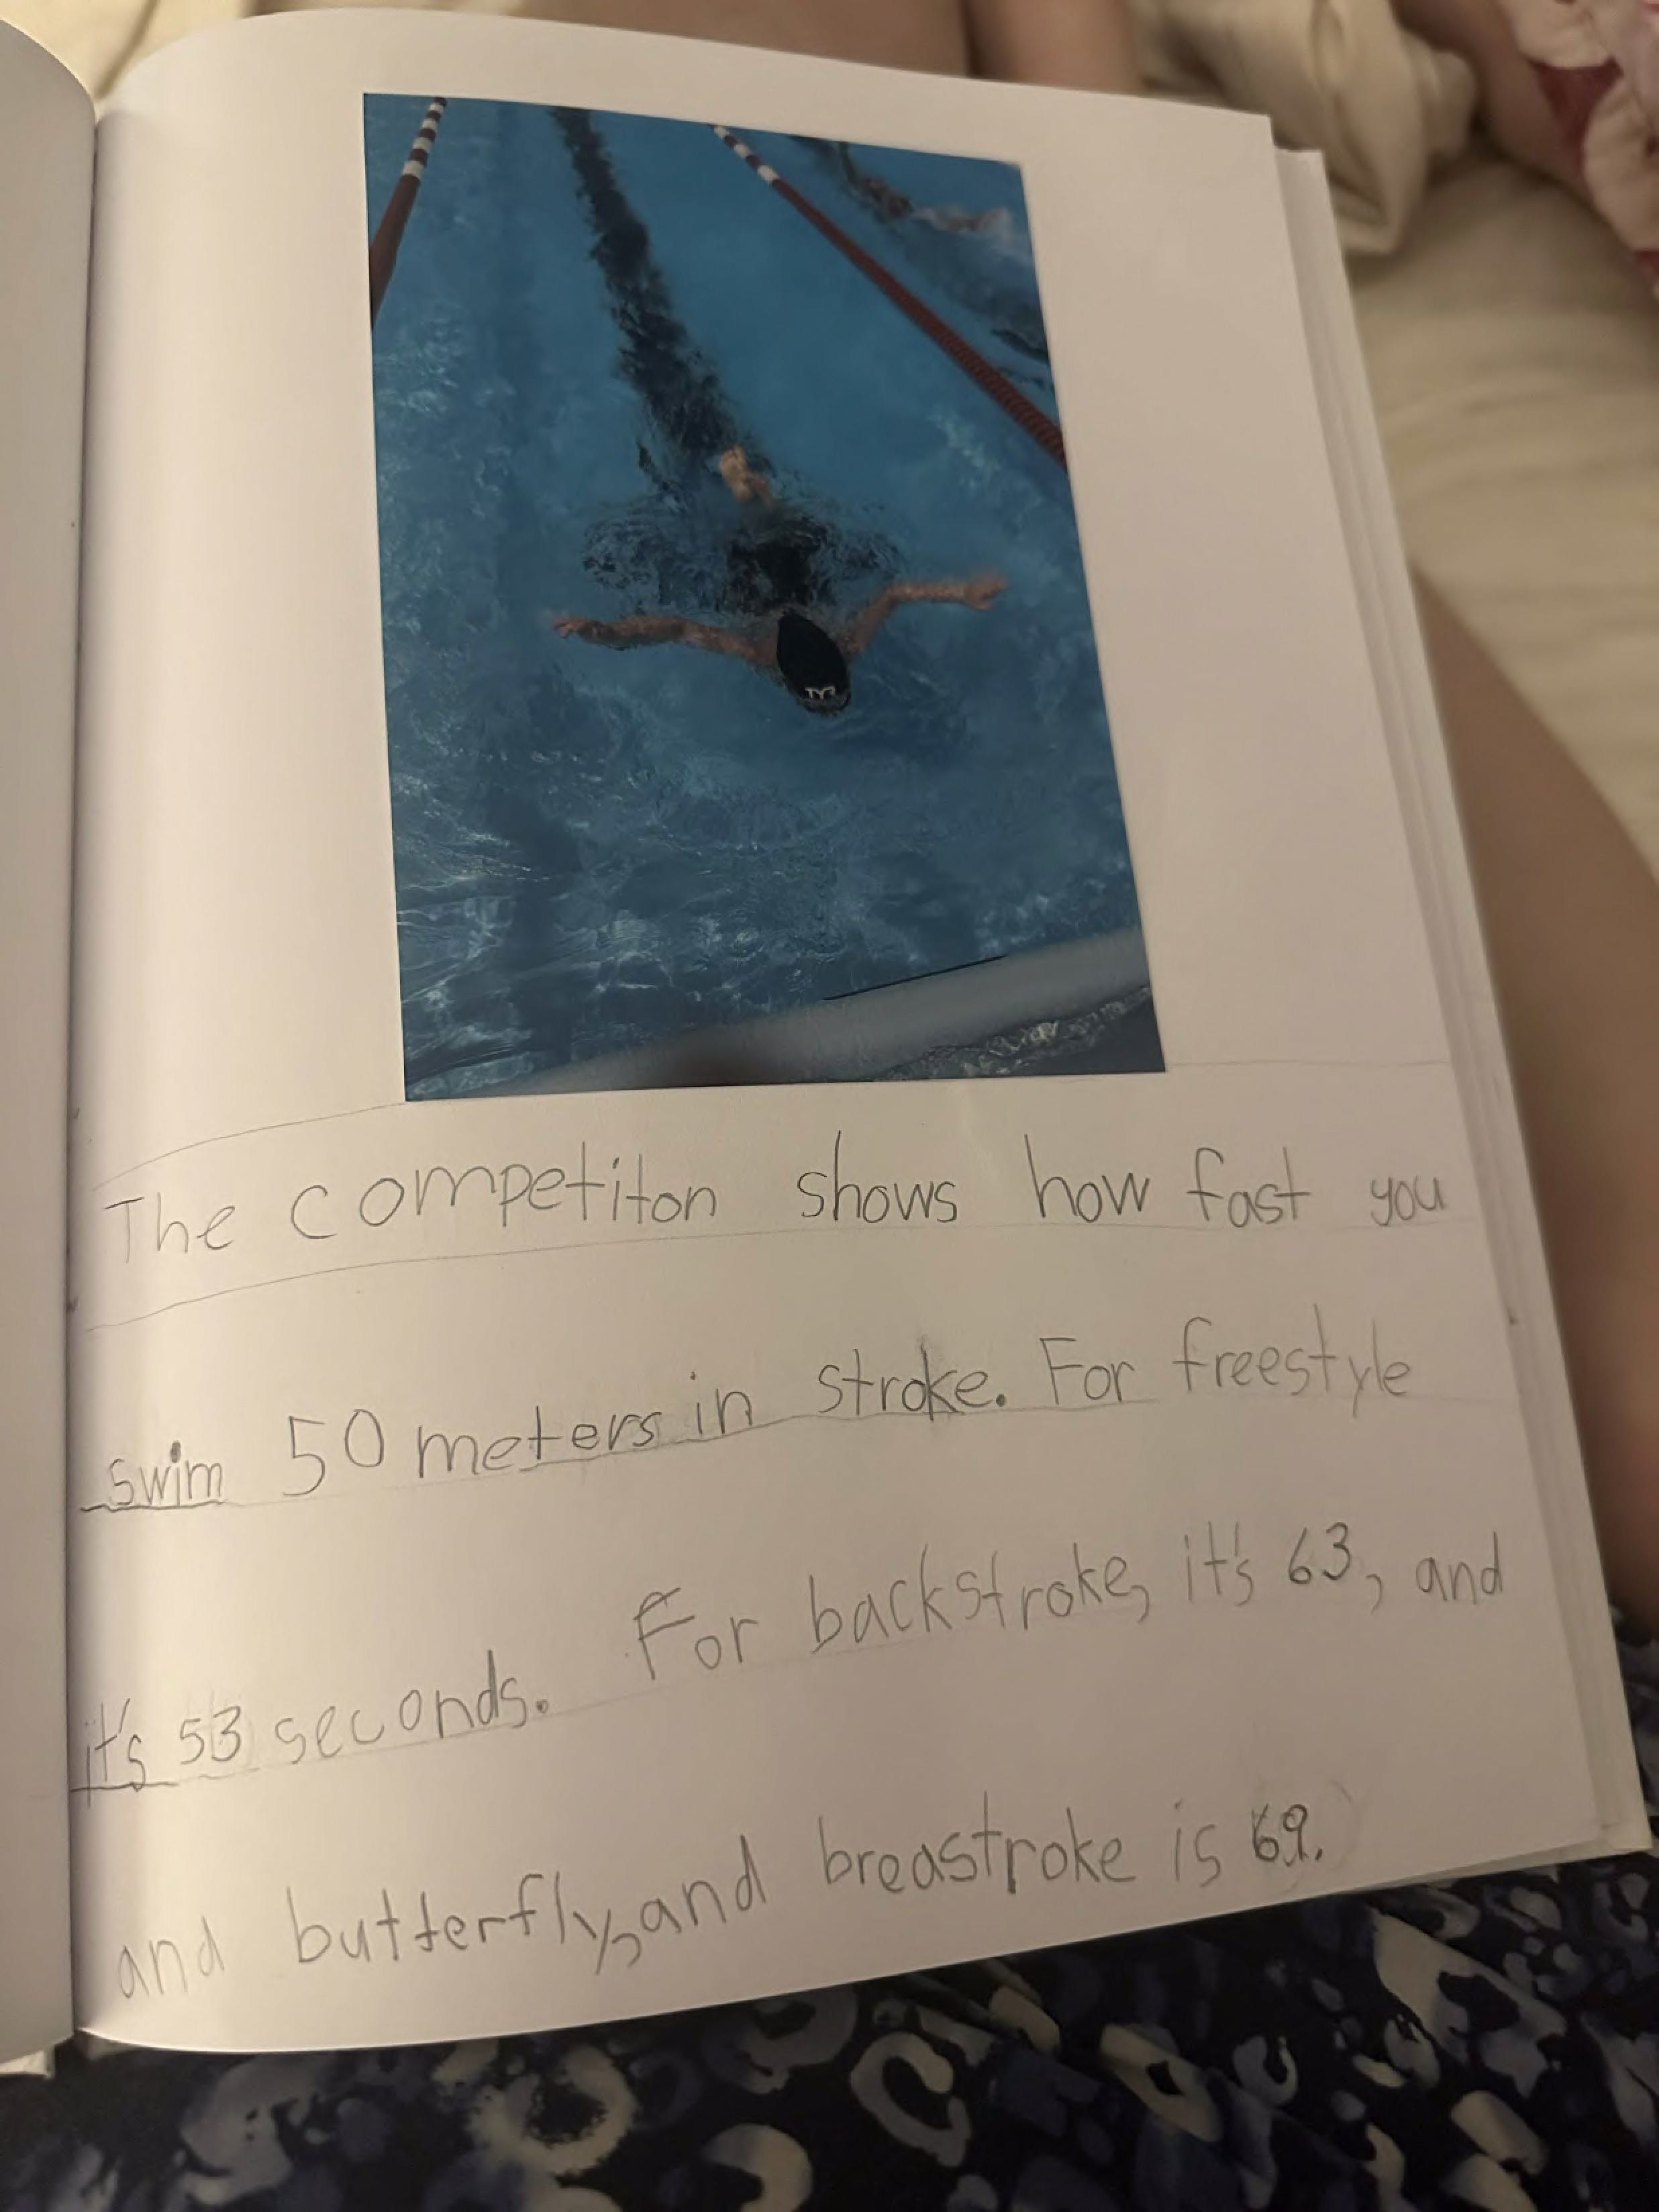 TYR
The competiton shows how fast you
swim 50 meters in stroke. For freestyle
it's 53 seconds. For backstroke, it's 63, and
and butterfly, and breastroke is 69.